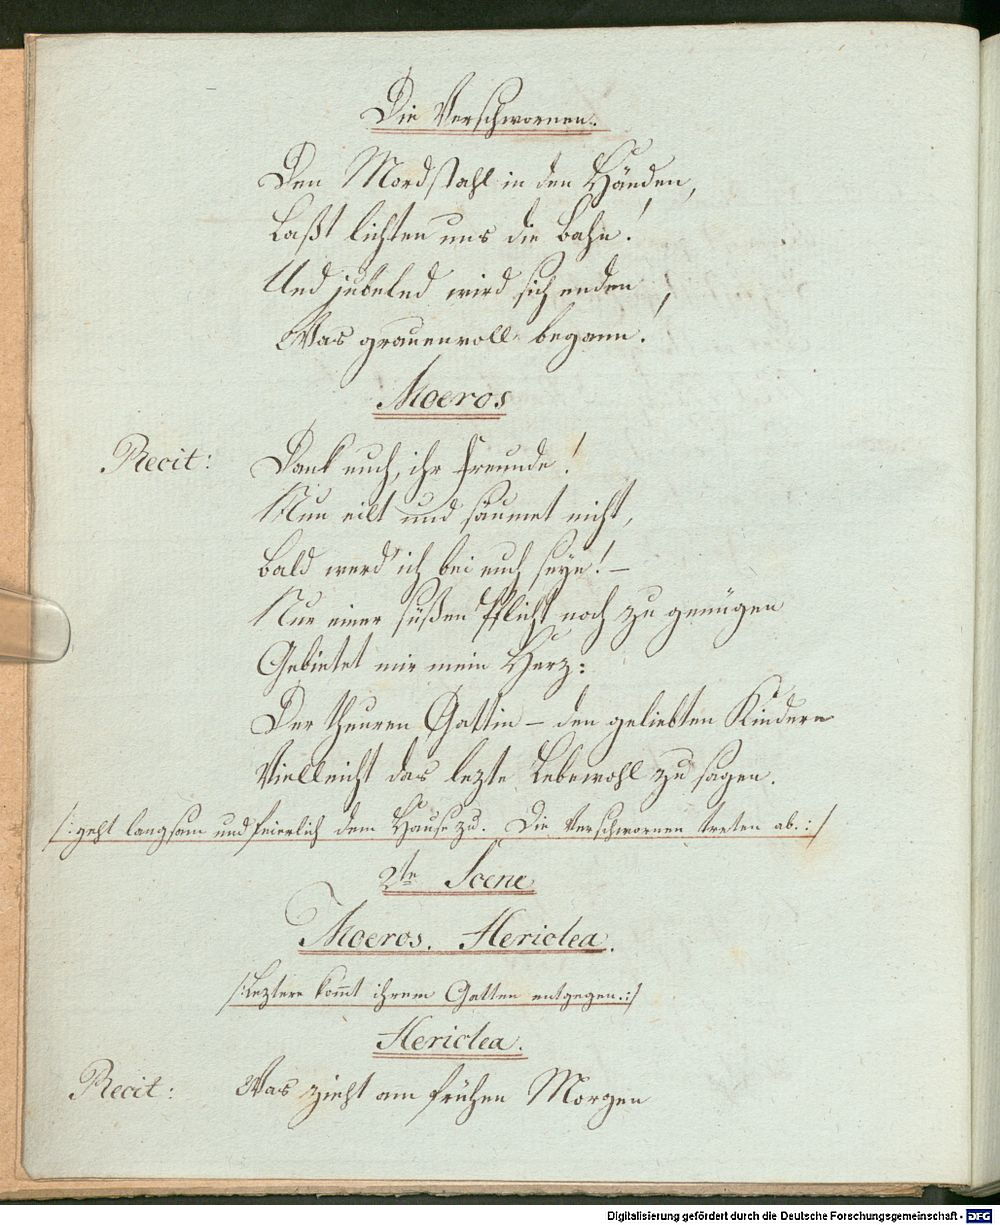 Die Verschwornen.
Den Mordstahl in den Händen,
Laßt lichten uns die Bahn!
Und jubelnd wird sich enden,
Was grauenvoll begann.
Moeros
Recit: Dank euch, ihr Freunde!
Nun eilt und säumet nicht,
Bald werd ich bei euch seyn! –
Nur einer süßen Pflicht noch zu genügen
Gebietet mir mein Herz:
Der theuren Gattin – den geliebten Kindern
Vielleicht das lezte Lebewohl zu sagen.
/: geht langsam und feierlich dem Hause zu. Die Verschwornen treten ab. :/
2te Scene
Moeros. Hericlea.
/: Leztere kommt ihrem Gatten entgegen. :/
Hericlea.
Recit: Was zieht am frühen Morgen
Digitalisierung gefördert durch die Deutsche Forschungsgemeinschaft - DFG